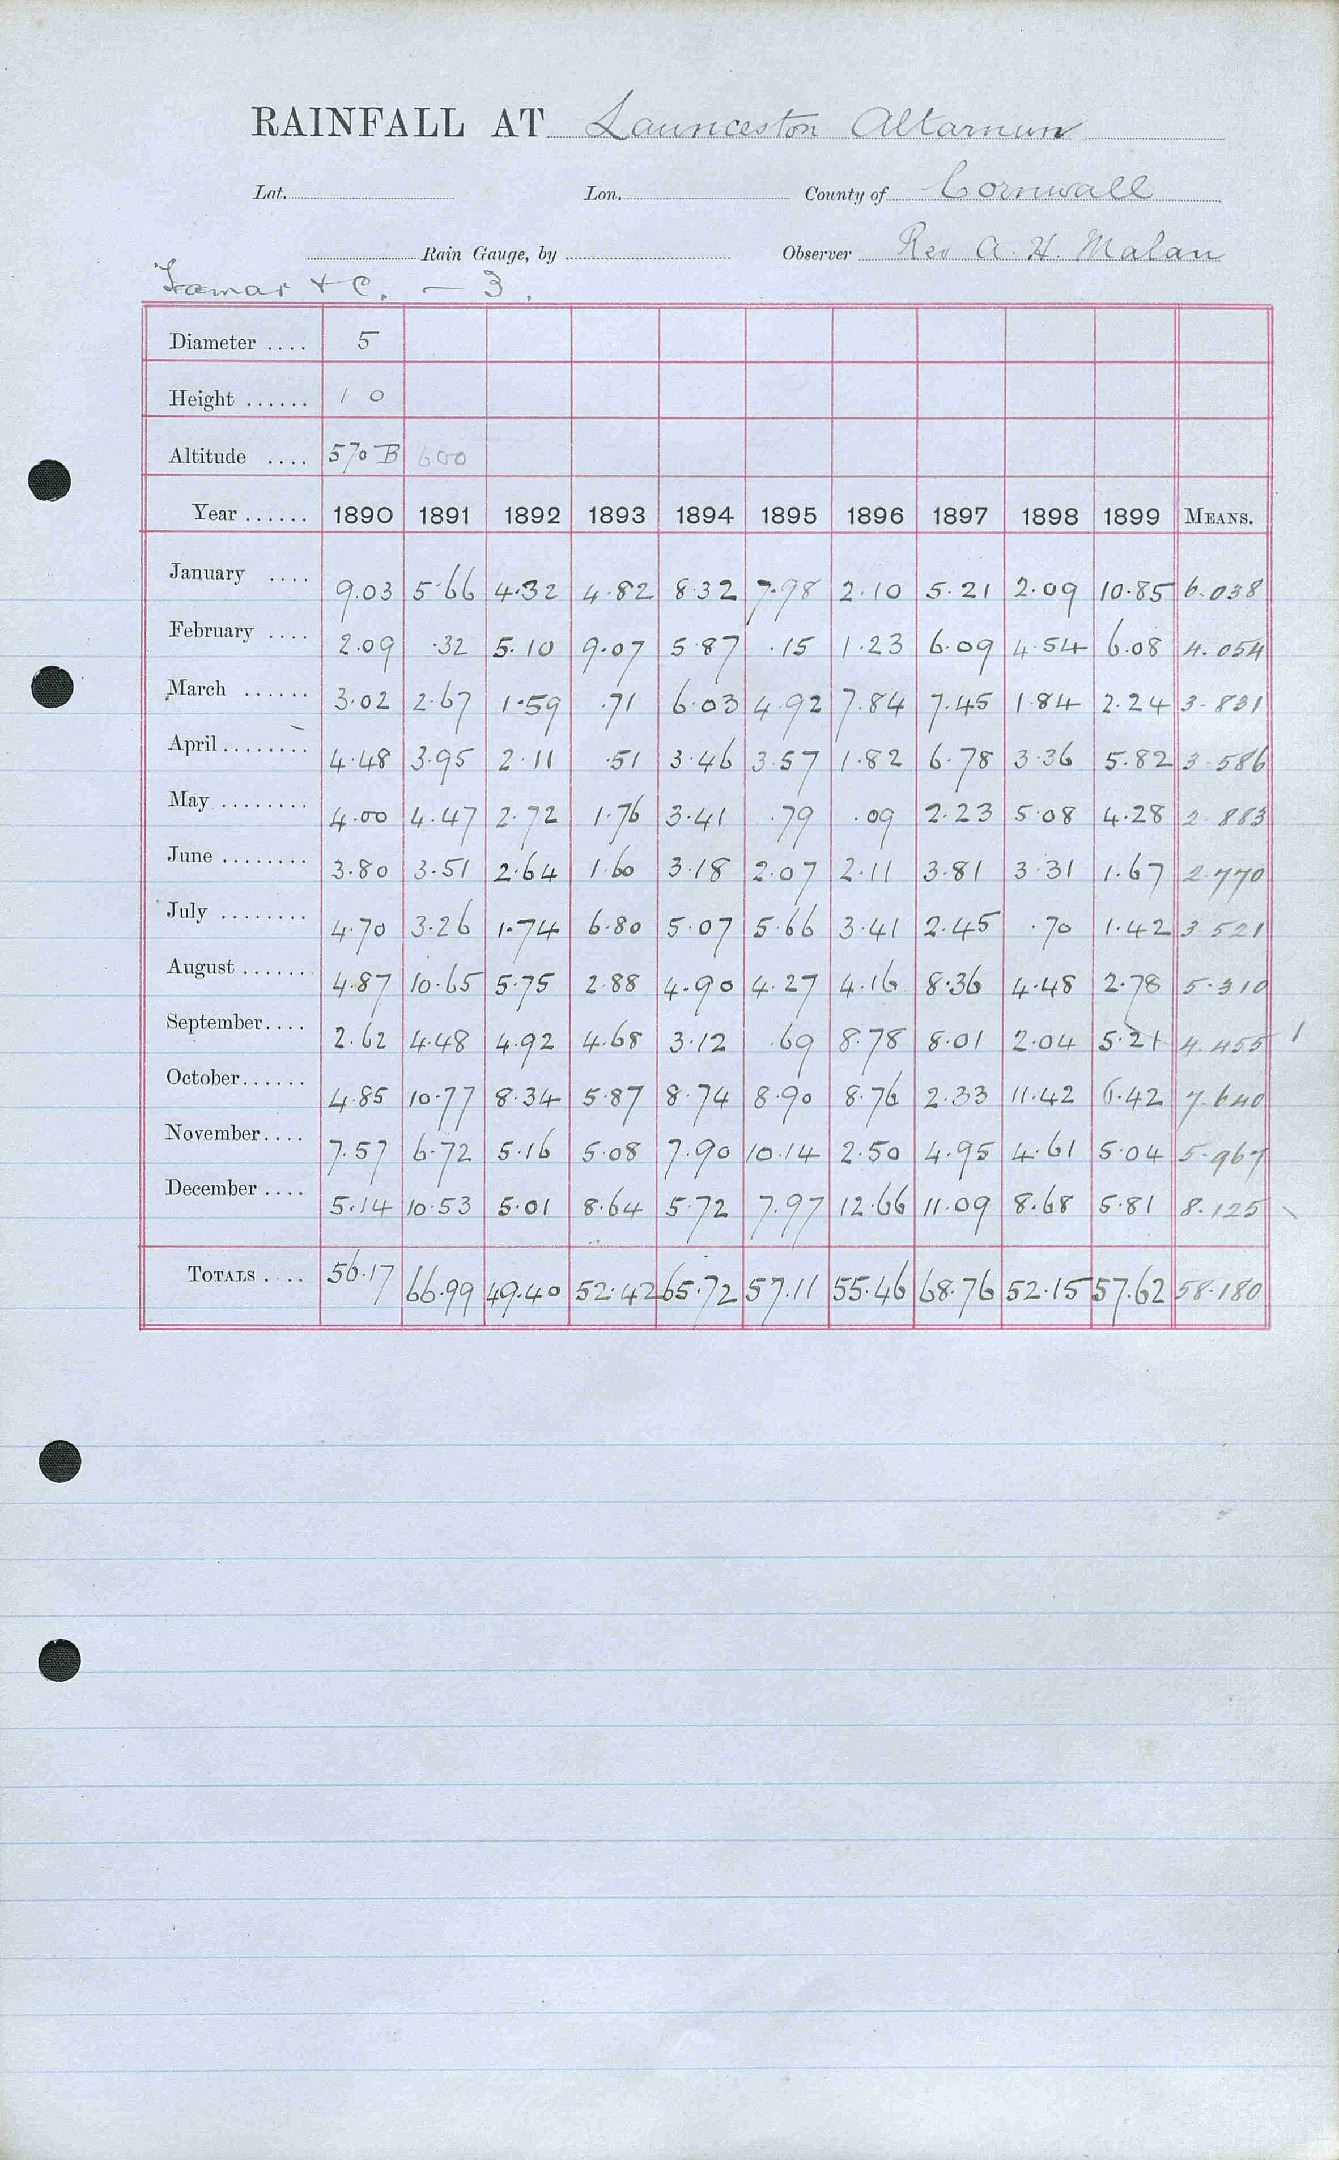 RAINFALL AT Launceston Altarnun
Lat. Lon. County of Cornwall
Rain Gauge, by Observer Rev A. H. Malan
Tamar & C. — 3.
Diameter .... 5
Height ...... 1 0
Altitude .... 570 B 600
Year ...... 1890 1891 1892 1893 1894 1895 1896 1897 1898 1899 MEANS.
January .... 9.03 5.66 4.32 4.82 8.32 7.98 2.10 5.21 2.09 10.85 6.038
February .... 2.09 .32 5.10 9.07 5.87 .15 1.23 6.09 4.54 6.08 4.054
March ...... 3.02 2.67 1.59 .71 6.03 4.92 7.84 7.45 1.84 2.24 3.831
April ........ 4.48 3.95 2.11 .51 3.46 3.57 1.82 6.78 3.36 5.82 3.586
May ........ 4.00 4.47 2.72 1.76 3.41 .79 .09 2.23 5.08 4.28 2.883
June ........ 3.80 3.51 2.64 1.60 3.18 2.07 2.11 3.81 3.31 1.67 2.770
July ........ 4.70 3.26 1.74 6.80 5.07 5.66 3.41 2.45 .70 1.42 3.521
August ...... 4.87 10.65 5.75 2.88 4.90 4.27 4.16 8.36 4.48 2.78 5.310
September.... 2.62 4.48 4.92 4.68 3.12 .69 8.78 8.01 2.04 5.21 4.455 1
October...... 4.85 10.77 8.34 5.87 8.74 8.90 8.76 2.33 11.42 6.42 7.640
November.... 7.57 6.72 5.16 5.08 7.90 10.14 2.50 4.95 4.61 5.04 5.967
December .... 5.14 10.53 5.01 8.64 5.72 7.97 12.66 11.09 8.68 5.81 8.125
TOTALS .... 56.17 66.99 49.40 52.42 65.72 57.11 55.46 68.76 52.15 57.62 58.180